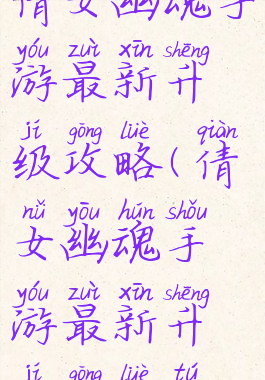 倩女幽魂手
yóu zuì xīn shēng
游最新升
jí gōng lüè qiàn
级攻略(倩
nǚ yōu hún shǒu
女幽魂手
yóu zuì xīn shēng
游最新升
jí gōng lüè tú